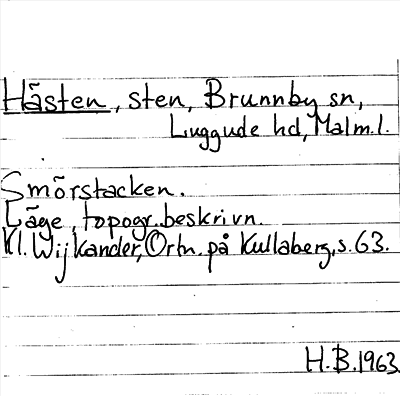 Hästen, sten, Brunnby sn,
Luggude hd, Malm.l.
Smörstacken.
Läge, topogr. beskrivn.
Kl. Wijkander, Ortn. på Kullaberg, s. 63.
H.B. 1963